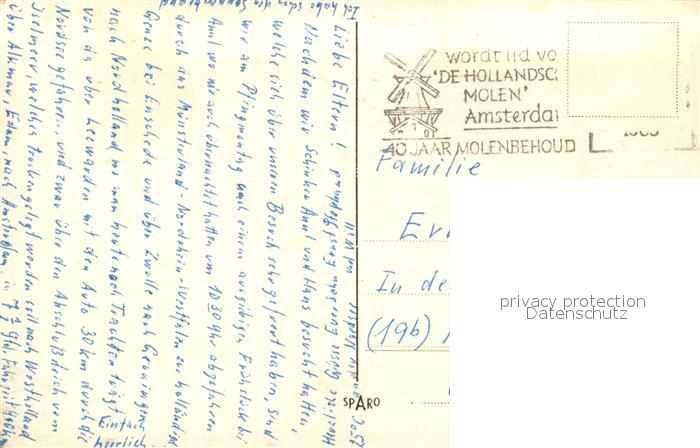 Liebe Eltern!
Nachdem wir Schinken Anni und Hans besucht hatten,
welche sich über unseren Besuch sehr gefreut haben, sind
wir am Pfingmontag nach einem ausgibigen Frühstück bei
Anni wo wir auch übernachtet hatten um 10 30 Uhr abgefahren
durch das Münsterland-Nordrhein-Westfalen zur holländisc
Grenze bei Enschede und über Zwolle nach Groningen
nach Nordholland wo man heute noch Trachten trägt
von da über Leewarden mit den Auto 30 km durch die
Nordsee gefahren, und zwar über den Abschlußdeich vom
Iselmeer, welches trockengelegt werden soll nach Westholland
über Alkmar, Edam, nach Amsterdam, in 7½ Std. Fahrzeit
Einfach
herrlich.
Ich habe schon den Sonnenbrand
Herzliche Grüsse
wordt lid vo
'DE HOLLANDSC
MOLEN'
Amsterda
40 JAAR MOLENBEHOUD
Familie
In de
(19b)
SPARO
privacy protection
Datenschutz